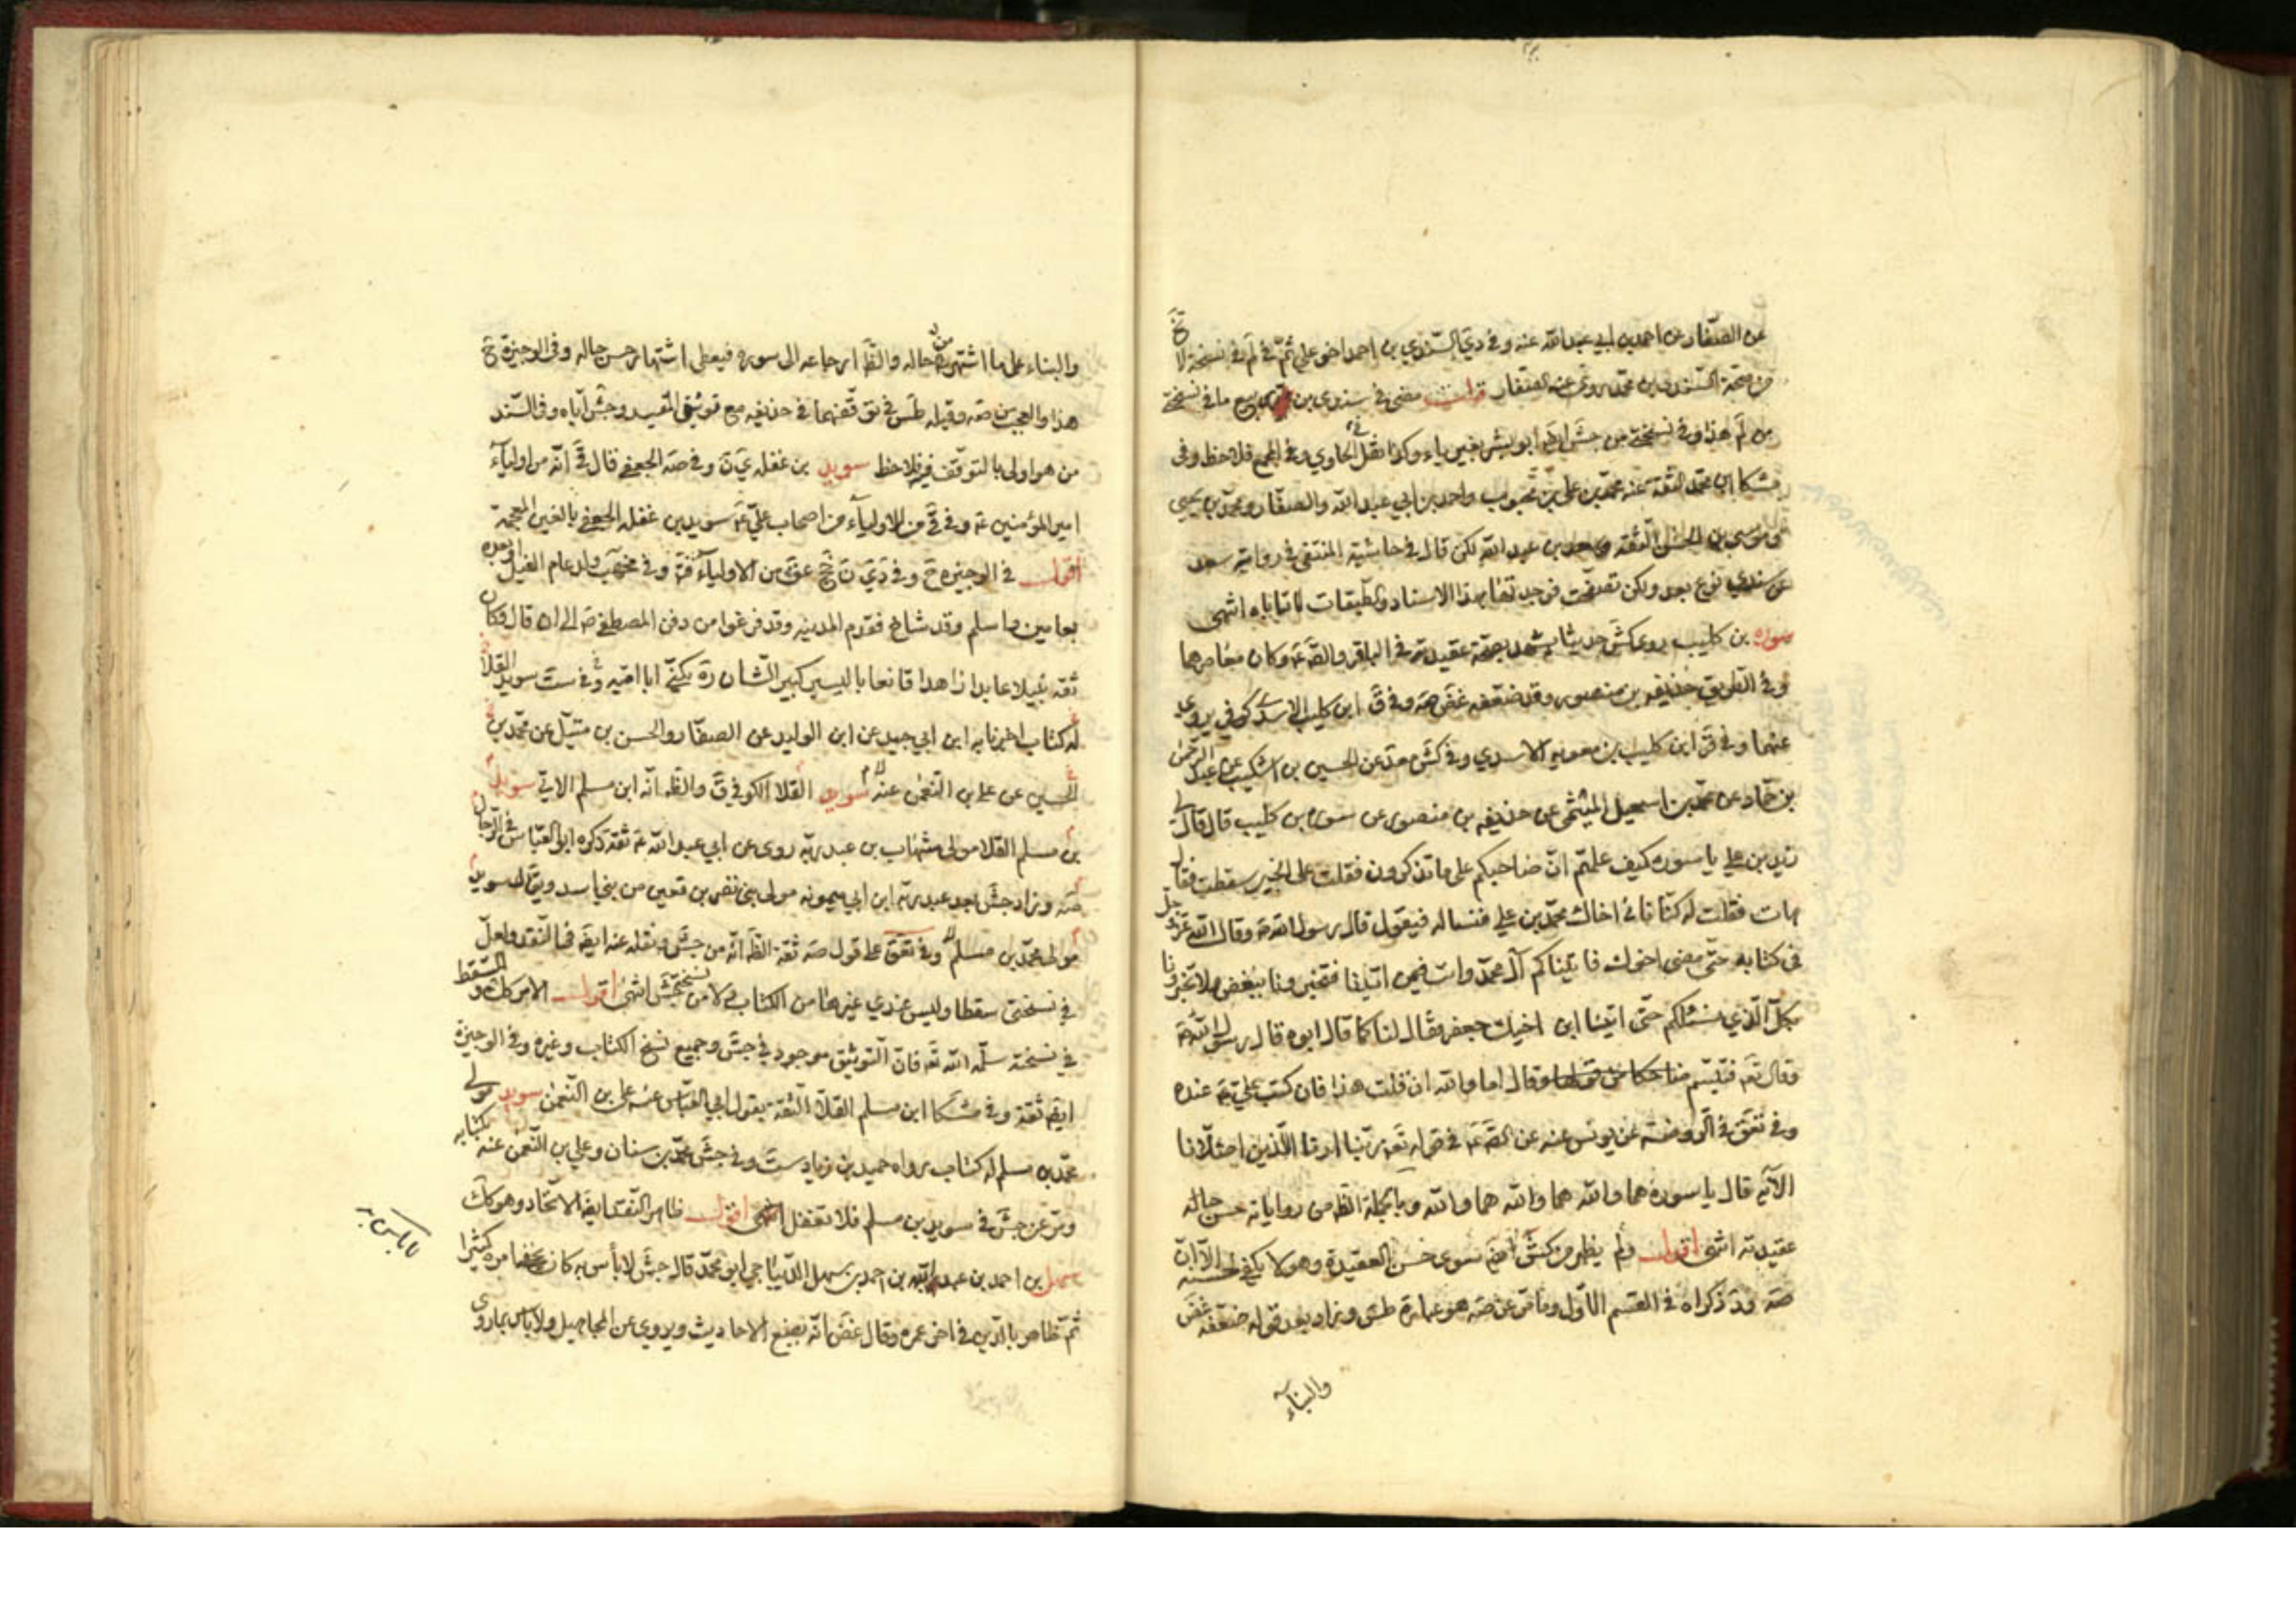 عن الصفار عن احمد بن ابي عبد الله عنه وفي دي السندي بن احمد اخو علي ثم في لم في نسخة لا
من صحة السندي بن محمد روى عنه الصفار قلت مضى في سندي بن مع ما في نسخة
من لم هذا وفي نسخة من جش ابو بشر بغير ياء وكذا نقل في الحاوي وفي المجمع فلاحظ وفي
مشكا ابن محمد الثقة عنه محمد بن علي بن محبوب واحمد بن ابي عبد الله والصفار ومحمد بن يحيى
وموسى بن الحسن الثقة بن عبد الله لكن قال في حاشية المنتقى في رواية سعد
عن سندي نوع بعد ولكن تصفحت فوجدتها بهذا الاسناد والطبقات لا تاباه انتهى
سورة بن كليب روى كش حديثا يشهد بصحة عقيدته في الباقر والصّ ع وكان معاصرهما
وفي الطريق حذيفه بن منصور وقد ضعفه غض صه وفي ق ابن كليب الاسدي كوفي يروي
عنهما وفي قر ابن كليب بن معويه الاسدي وفي كش محمد عن الحسين بن اشكيب عن عبد الرحمن
بن حماد عن محمد بن اسمعيل الميثمي عن حذيفه بن منصور عن سوره بن كليب قال قال لي
زيد بن علي يا سوره كيف علمتم ان صاحبكم على ما تذكرون فقلت على الخبير سقطت فقال
هات فقلت له كنا ناتي اخاك محمد بن علي فنساله فيقول قال رسول الله ص وقال الله عز وجل
في كتابه حتى مضى اخوك فاتيناكم آل محمد وانت فيمن اتينا فتخبرونا ببعض ولا تخبرونا
بكل الذي نسئلكم حتى اتينا ابن اخيك جعفر فقال لنا كما قال ابوه قال رسول الله ص
وقال تعَ فتبسم وقال اما والله ان قلت هذا فان كتب علي ع عنده
وفي تعق في الروضة عن يونس عنه عن الصَّ ع في قوله تعَ ربنا ارنا اللذين اضلانا
الآيه قال يا سوره هما والله هما والله هما والله وبالجملة الظ من رواياته حسن حاله
عقيدته انتهى اقول ولم يظهر من كش ايضَ سوى حسن العقيدة وهو لا يكفي لحسنه الا ان
صه ود ذكراه في القسم الاول وما مر عن صه هو عبارة طس وزاد بعد قوله ضعفه غض
والبناء
والبناء على ما اشتهر من حاله والظَ ارجاعه الى سورة فيعطى اشتهار حسن حاله وفي الوجيزة ح
هذا والعجب من صه وقبله طس في توقفهما في حذيفه مع توثيق المفيد وجش اياه وفي السند
من هو اولى بالتوقف فيه فلاحظ سويد بن غفله ي ن وفي صه الجعفي قال ق انه من اولياء
امير المؤمنين ع وفي قي من الاولياء من اصحاب علي ع سويد بن غفله الجعفي بالغين المعجمة
اقول في الوجيزه ح وفي د ي ن جخ عق من الاولياء وفي مخهب ولد عام الفيل او بعده
بعامين واسلم وقد شاخ فقدم المدينه وقد فرغوا من دفن المصطفى ص الى ان قال وكان
ثقه نبيلا عابدا زاهدا قانعا باليسير كبير الشان ره يكنى ابا اميه وفي ست سويد القلا
له كتاب اخبرنا به ابن ابي جيد عن ابن الوليد عن الصفار والحسن بن متيل عن محمد بن
الحسين عن علي بن النعمن عنه سويد القلا الكوفي ق والظ انه ابن مسلم الاتي سويد
بن مسلم القلا مولى شهاب بن عبد ربه روى عن ابي عبد الله ع ثقة ذكره ابو العباس في الرجال
صه وزاد جش بعد عبد ربه ابن ابي ميمونه مولى بني نصر بن قعين من بني اسد ويقال سويد
مولى محمد بن مسلم وفي تعق على قول صه ثقة الظَ انه من جش ونقله عنه ايضَ في النقد ولعل
في نسختي سقطا وليس عندي غيرها من الكتاب لا من نسخ جش انتهى اقول الامر كك والسقط
في نسخته سلمه الله تعَ فان التوثيق موجود في جش وجميع نسخ الكتاب وغيره وفي الوجيزة
ايضَ ثقة وفي مشكا ابن مسلم القلا الثقة بقول ابي العباس عنه علي بن النعمن سويد مولى
محمد بن مسلم له كتاب رواه حميد بن زياد ست وفي جش محمد بن سنان وعلي بن النعمن عنه بكتابه
ومر عن جش في سويد بن مسلم فلا تغفل انتهى اقول ظاهر النقد ايضَ الاتحاد وهو كك
سهل بن احمد بن عبد الله بن احمد بن سهل الديباجي ابو محمد قال جش لا بأس به كان يخفي امره كثيرا
ثم تظاهر بالدين في اخر عمره وقال غض انه يضع الاحاديث ويروي عن المجاهيل ولا باس بما روى
لا باس به